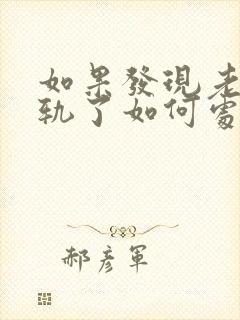 如果發現老
軌了如何處
郝彦軍